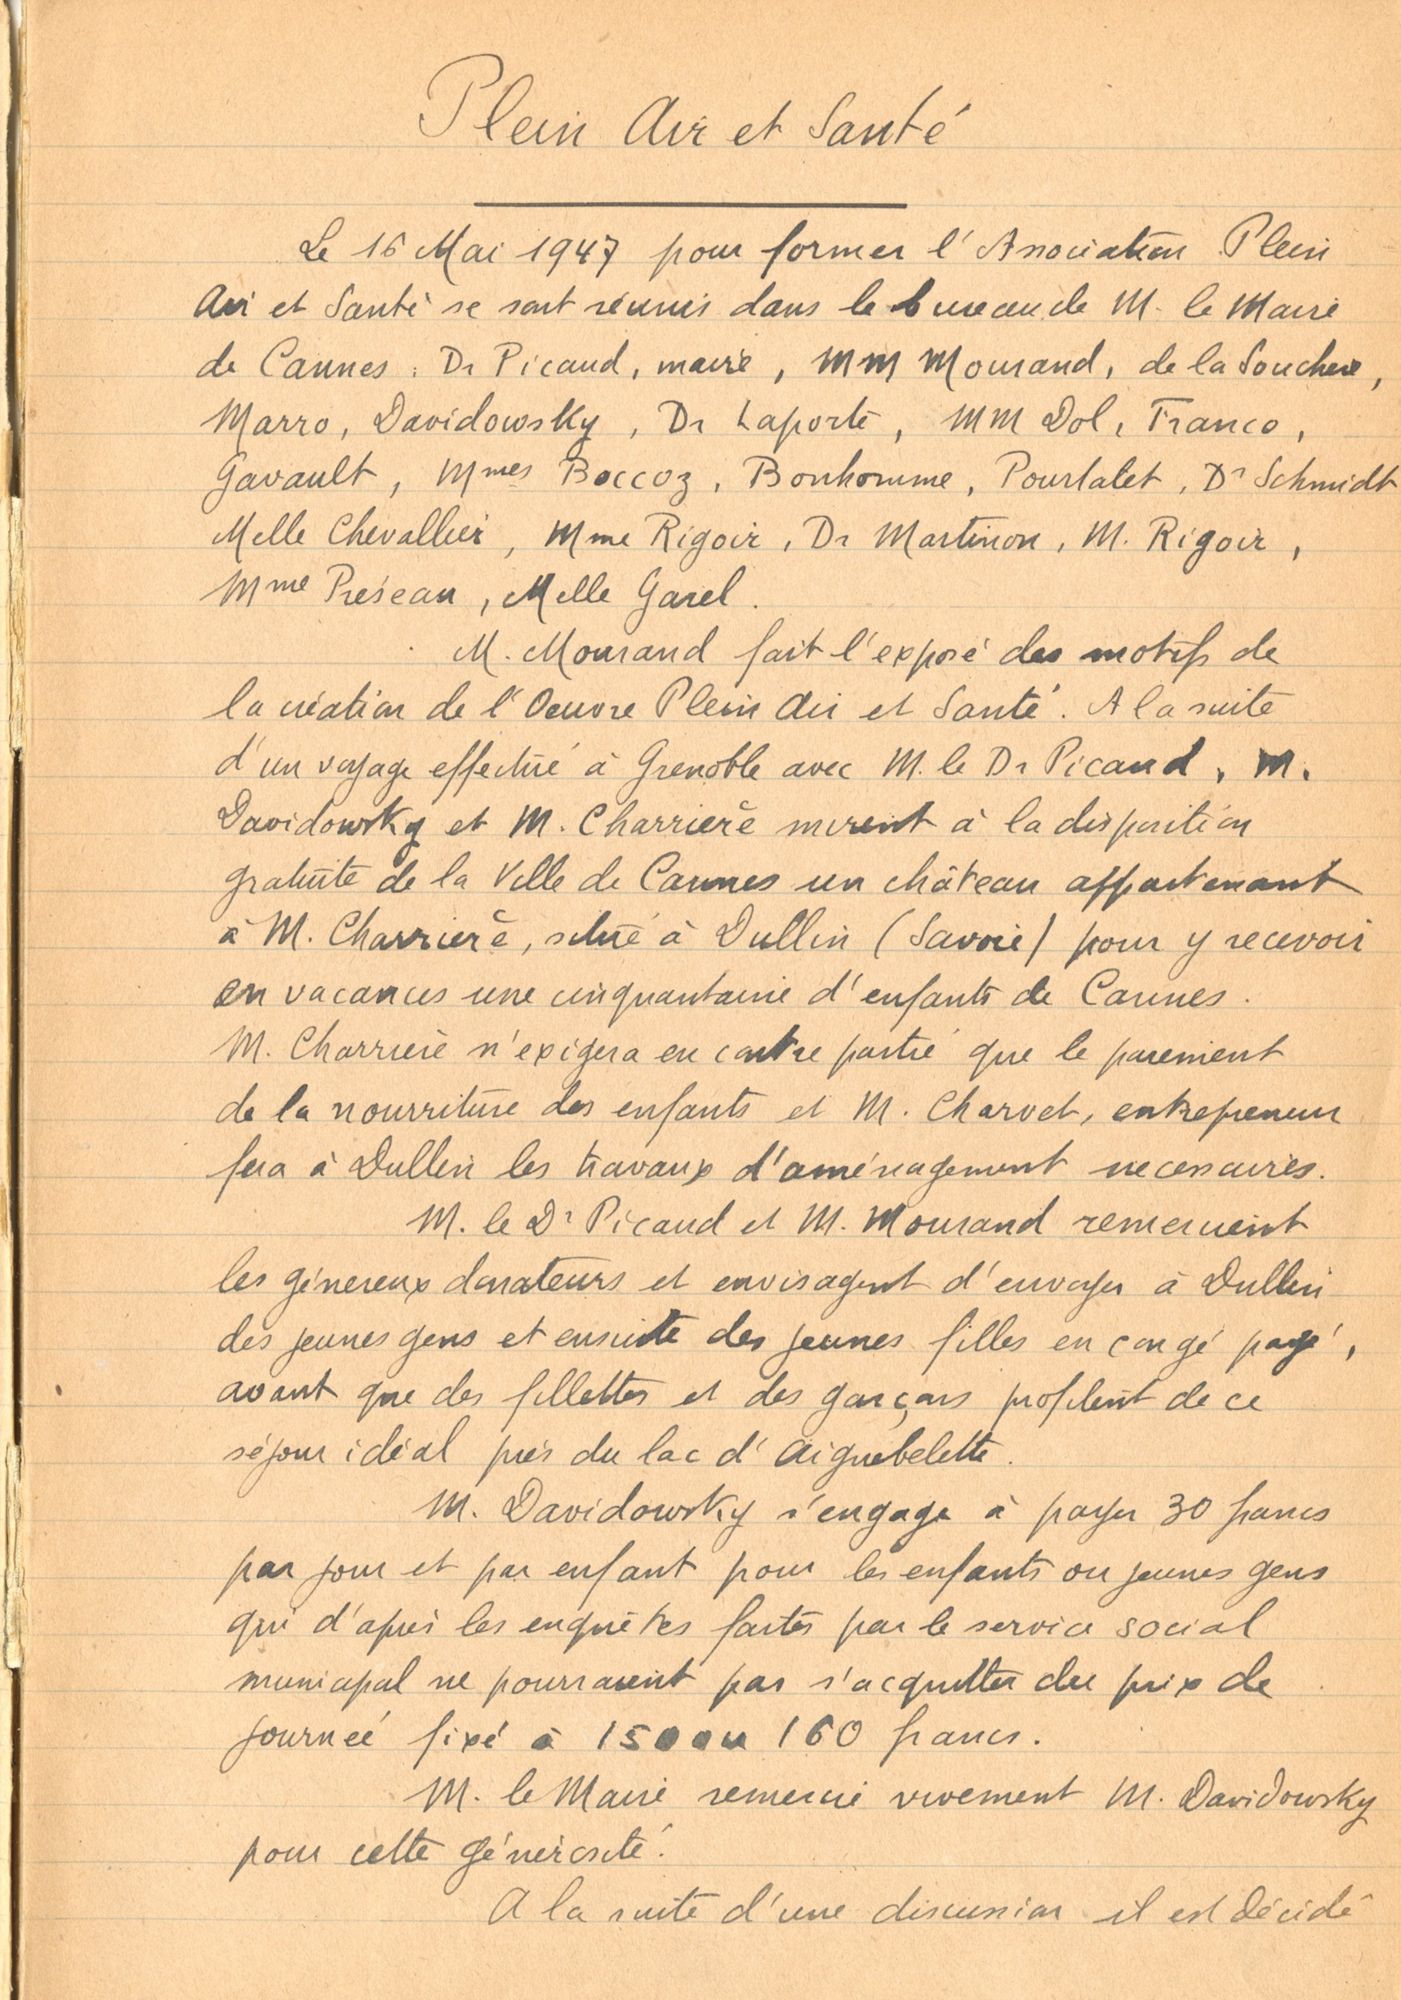 Plein Air et Santé
Le 16 Mai 1947 pour former l'Association Plein
Air et Santé se sont réunis dans le bureau de M. le Maire
de Cannes : Dr Picaud, maire, MM Mourand, de la Souchere,
Marro, Davidowsky, Dr Laporte, MM Dol, Franco,
Gavault, Mmes Boccoz, Bonhomme, Pourtalet, Dr Schmidt
Melle Chevallier, Mme Rigoir, Dr Martinon, M. Rigoir,
Mme Préseau, Melle Garel.
M. Mourand fait l'exposé des motifs de
la création de l'Oeuvre Plein Air et Santé. A la suite
d'un voyage effectué à Grenoble avec M. le Dr Picaud, M.
Davidowsky et M. Charrière mirent à la disposition
gratuite de la Ville de Cannes un château appartenant
à M. Charrière, situé à Dullin (Savoie) pour y recevoir
en vacances une cinquantaine d'enfants de Cannes.
M. Charrière n'exigera en contre partie que le paiement
de la nourriture des enfants et M. Charvet, entrepreneur
fera à Dullin les travaux d'aménagement necessaires.
M. le Dr Picaud et M. Mourand remercient
les génereux donateurs et envisagent d'envoyer à Dullin
des jeunes gens et ensuite des jeunes filles en congé payé,
avant que des fillettes et des garçons profitent de ce
séjour idéal près du lac d'Aiguebelette.
M. Davidowsky s'engage à payer 30 francs
par jour et par enfant pour les enfants ou jeunes gens
qui d'après les enquêtes faites par le service social
municipal ne pourraient pas s'acquitter du prix de
journée fixé à 150 ou 160 francs.
M. le Maire remercie vivement M. Davidowsky
pour cette générosité.
A la suite d'une discussion il est décidé